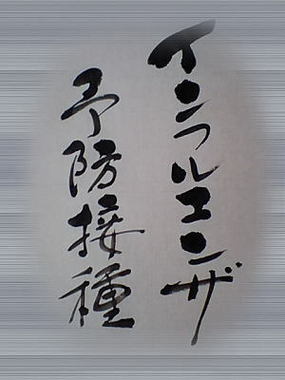 インフルエンザ
予防接種